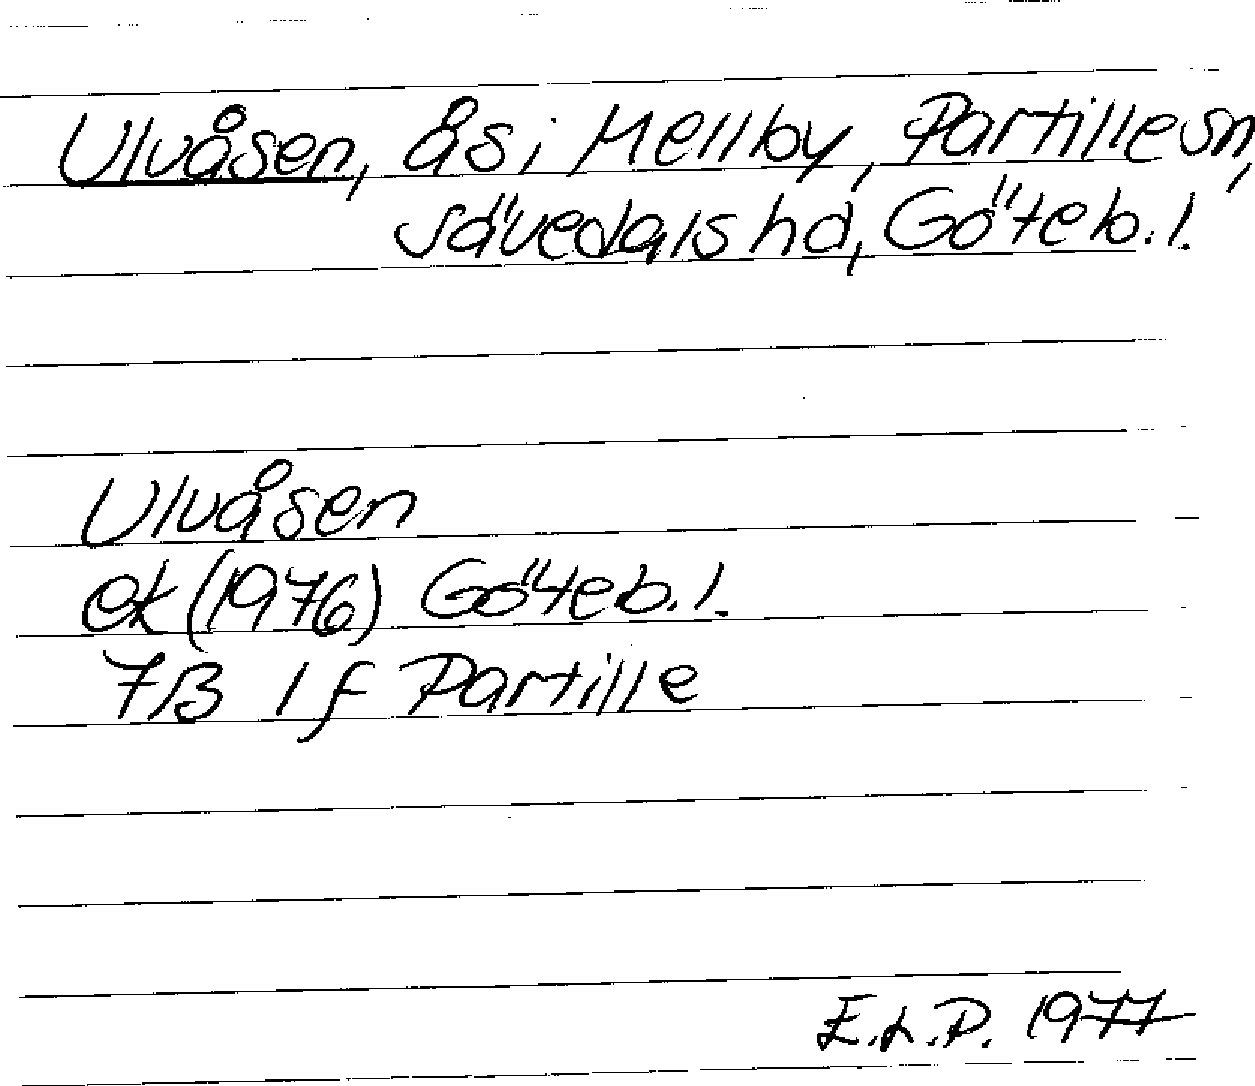 Ulvåsen, ås i Mellby, Partille sn,
Sävedals hd, Göteb. l.
Ulvåsen
ek (1976) Göteb. l.
7B 1f Partille
E.L.P. 1977